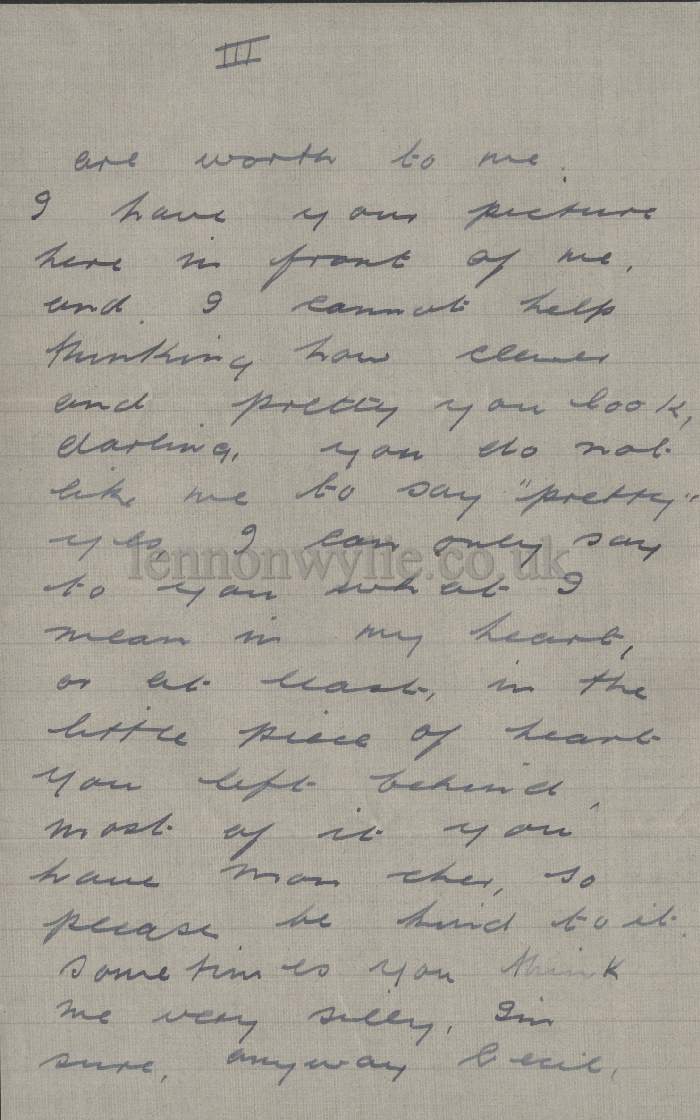 III
are worth to me.
I have your picture
here in front of me,
and I cannot help
thinking how clever
and pretty you look,
darling, you do not
like me to say "pretty"
yes, I can only say
lennonwylie.co.uk
to you what I
mean in my heart,
or at least, in the
little piece of heart
you left behind,
most of it you
have mon cher, so
please be kind to it.
Sometimes you think
me very silly, I'm
sure, anyway Cecil,